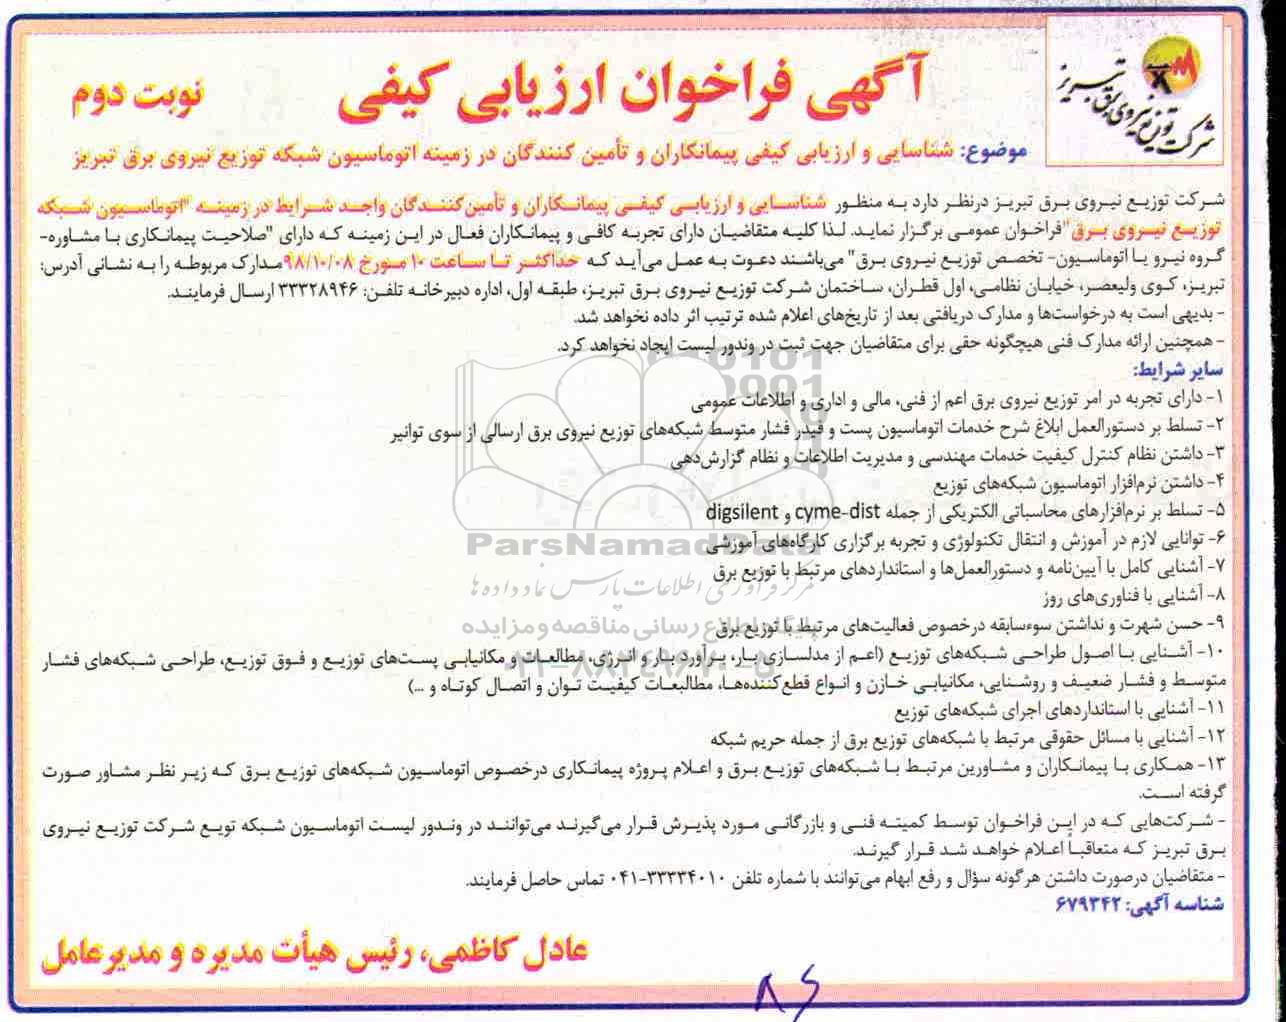 شرکت توزیع نیروی برق تبریز
آگهی فراخوان ارزیابی کیفی
نوبت دوم
موضوع: شناسایی و ارزیابی کیفی پیمانکاران و تأمین کنندگان در زمینه اتوماسیون شبکه توزیع نیروی برق تبریز
شرکت توزیع نیروی برق تبریز درنظر دارد به منظور شناسایی و ارزیابی کیفی پیمانکاران و تأمین‌کنندگان واجد شرایط در زمینه "اتوماسیون شبکه
توزیع نیروی برق" فراخوان عمومی برگزار نماید. لذا کلیه متقاضیان دارای تجربه کافی و پیمانکاران فعال در این زمینه که دارای "صلاحیت پیمانکاری با مشاوره-
گروه نیرو یا اتوماسیون- تخصص توزیع نیروی برق" می‌باشند دعوت به عمل می‌آید که حداکثر تا ساعت ۱۰ مورخ ۹۸/۱۰/۰۸ مدارک مربوطه را به نشانی آدرس:
تبریز، کوی ولیعصر، خیابان نظامی، اول قطران، ساختمان شرکت توزیع نیروی برق تبریز، طبقه اول، اداره دبیرخانه تلفن: ۳۳۳۲۸۹۴۶ ارسال فرمایند.
- بدیهی است به درخواست‌ها و مدارک دریافتی بعد از تاریخ‌های اعلام شده ترتیب اثر داده نخواهد شد.
- همچنین ارائه مدارک فنی هیچگونه حقی برای متقاضیان جهت ثبت در وندور لیست ایجاد نخواهد کرد.
سایر شرایط:
۱- دارای تجربه در امر توزیع نیروی برق اعم از فنی، مالی و اداری و اطلاعات عمومی
۲- تسلط بر دستورالعمل ابلاغ شرح خدمات اتوماسیون پست و فیدر فشار متوسط شبکه‌های توزیع نیروی برق ارسالی از سوی توانیر
۳- داشتن نظام کنترل کیفیت خدمات مهندسی و مدیریت اطلاعات و نظام گزارش‌دهی
۴- داشتن نرم‌افزار اتوماسیون شبکه‌های توزیع
۵- تسلط بر نرم‌افزارهای محاسباتی الکتریکی از جمله cyme-dist و digsilent
۶- توانایی لازم در آموزش و انتقال تکنولوژی و تجربه برگزاری کارگاه‌های آموزشی
۷- آشنایی کامل با آیین‌نامه و دستورالعمل‌ها و استانداردهای مرتبط با توزیع برق
۸- آشنایی با فناوری‌های روز
۹- حسن شهرت و نداشتن سوءسابقه درخصوص فعالیت‌های مرتبط با توزیع برق
۱۰- آشنایی با اصول طراحی شبکه‌های توزیع (اعم از مدلسازی بار، برآورد بار و انرژی، مطالعات و مکانیابی پست‌های توزیع و فوق توزیع، طراحی شبکه‌های فشار
متوسط و فشار ضعیف و روشنایی، مکانیابی خازن و انواع قطع‌کننده‌ها، مطالبعات کیفیت توان و اتصال کوتاه و ...)
۱۱- آشنایی با استانداردهای اجرای شبکه‌های توزیع
۱۲- آشنایی با مسائل حقوقی مرتبط با شبکه‌های توزیع برق از جمله حریم شبکه
۱۳- همکاری با پیمانکاران و مشاورین مرتبط با شبکه‌های توزیع برق و اعلام پروژه پیمانکاری درخصوص اتوماسیون شبکه‌های توزیع برق که زیر نظر مشاور صورت
گرفته است.
- شرکت‌هایی که در این فراخوان توسط کمیته فنی و بازرگانی مورد پذیرش قرار می‌گیرند می‌توانند در وندور لیست اتوماسیون شبکه تویع شرکت توزیع نیروی
برق تبریز که متعاقباً اعلام خواهد شد قرار گیرند.
- متقاضیان درصورت داشتن هرگونه سؤال و رفع ابهام می‌توانند با شماره تلفن ۳۳۳۳۴۰۱۰-۰۴۱ تماس حاصل فرمایند.
شناسه آگهی: ۶۷۹۳۴۲
عادل کاظمی، رئیس هیأت مدیره و مدیرعامل
ParsNamadData
مرکز فرآوری اطلاعات پارس نماد داده‌ها
پایگاه اطلاع رسانی مناقصه و مزایده
۰۲۱-۸۸۳۴۹۶۷۰-۵